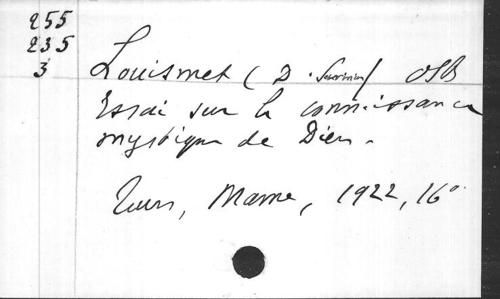 255
235
3
Louismet (D. Savinien) OSB
Essai sur la connaissance
mystique de Dieu.
Tours, Mame, 1922, 16°